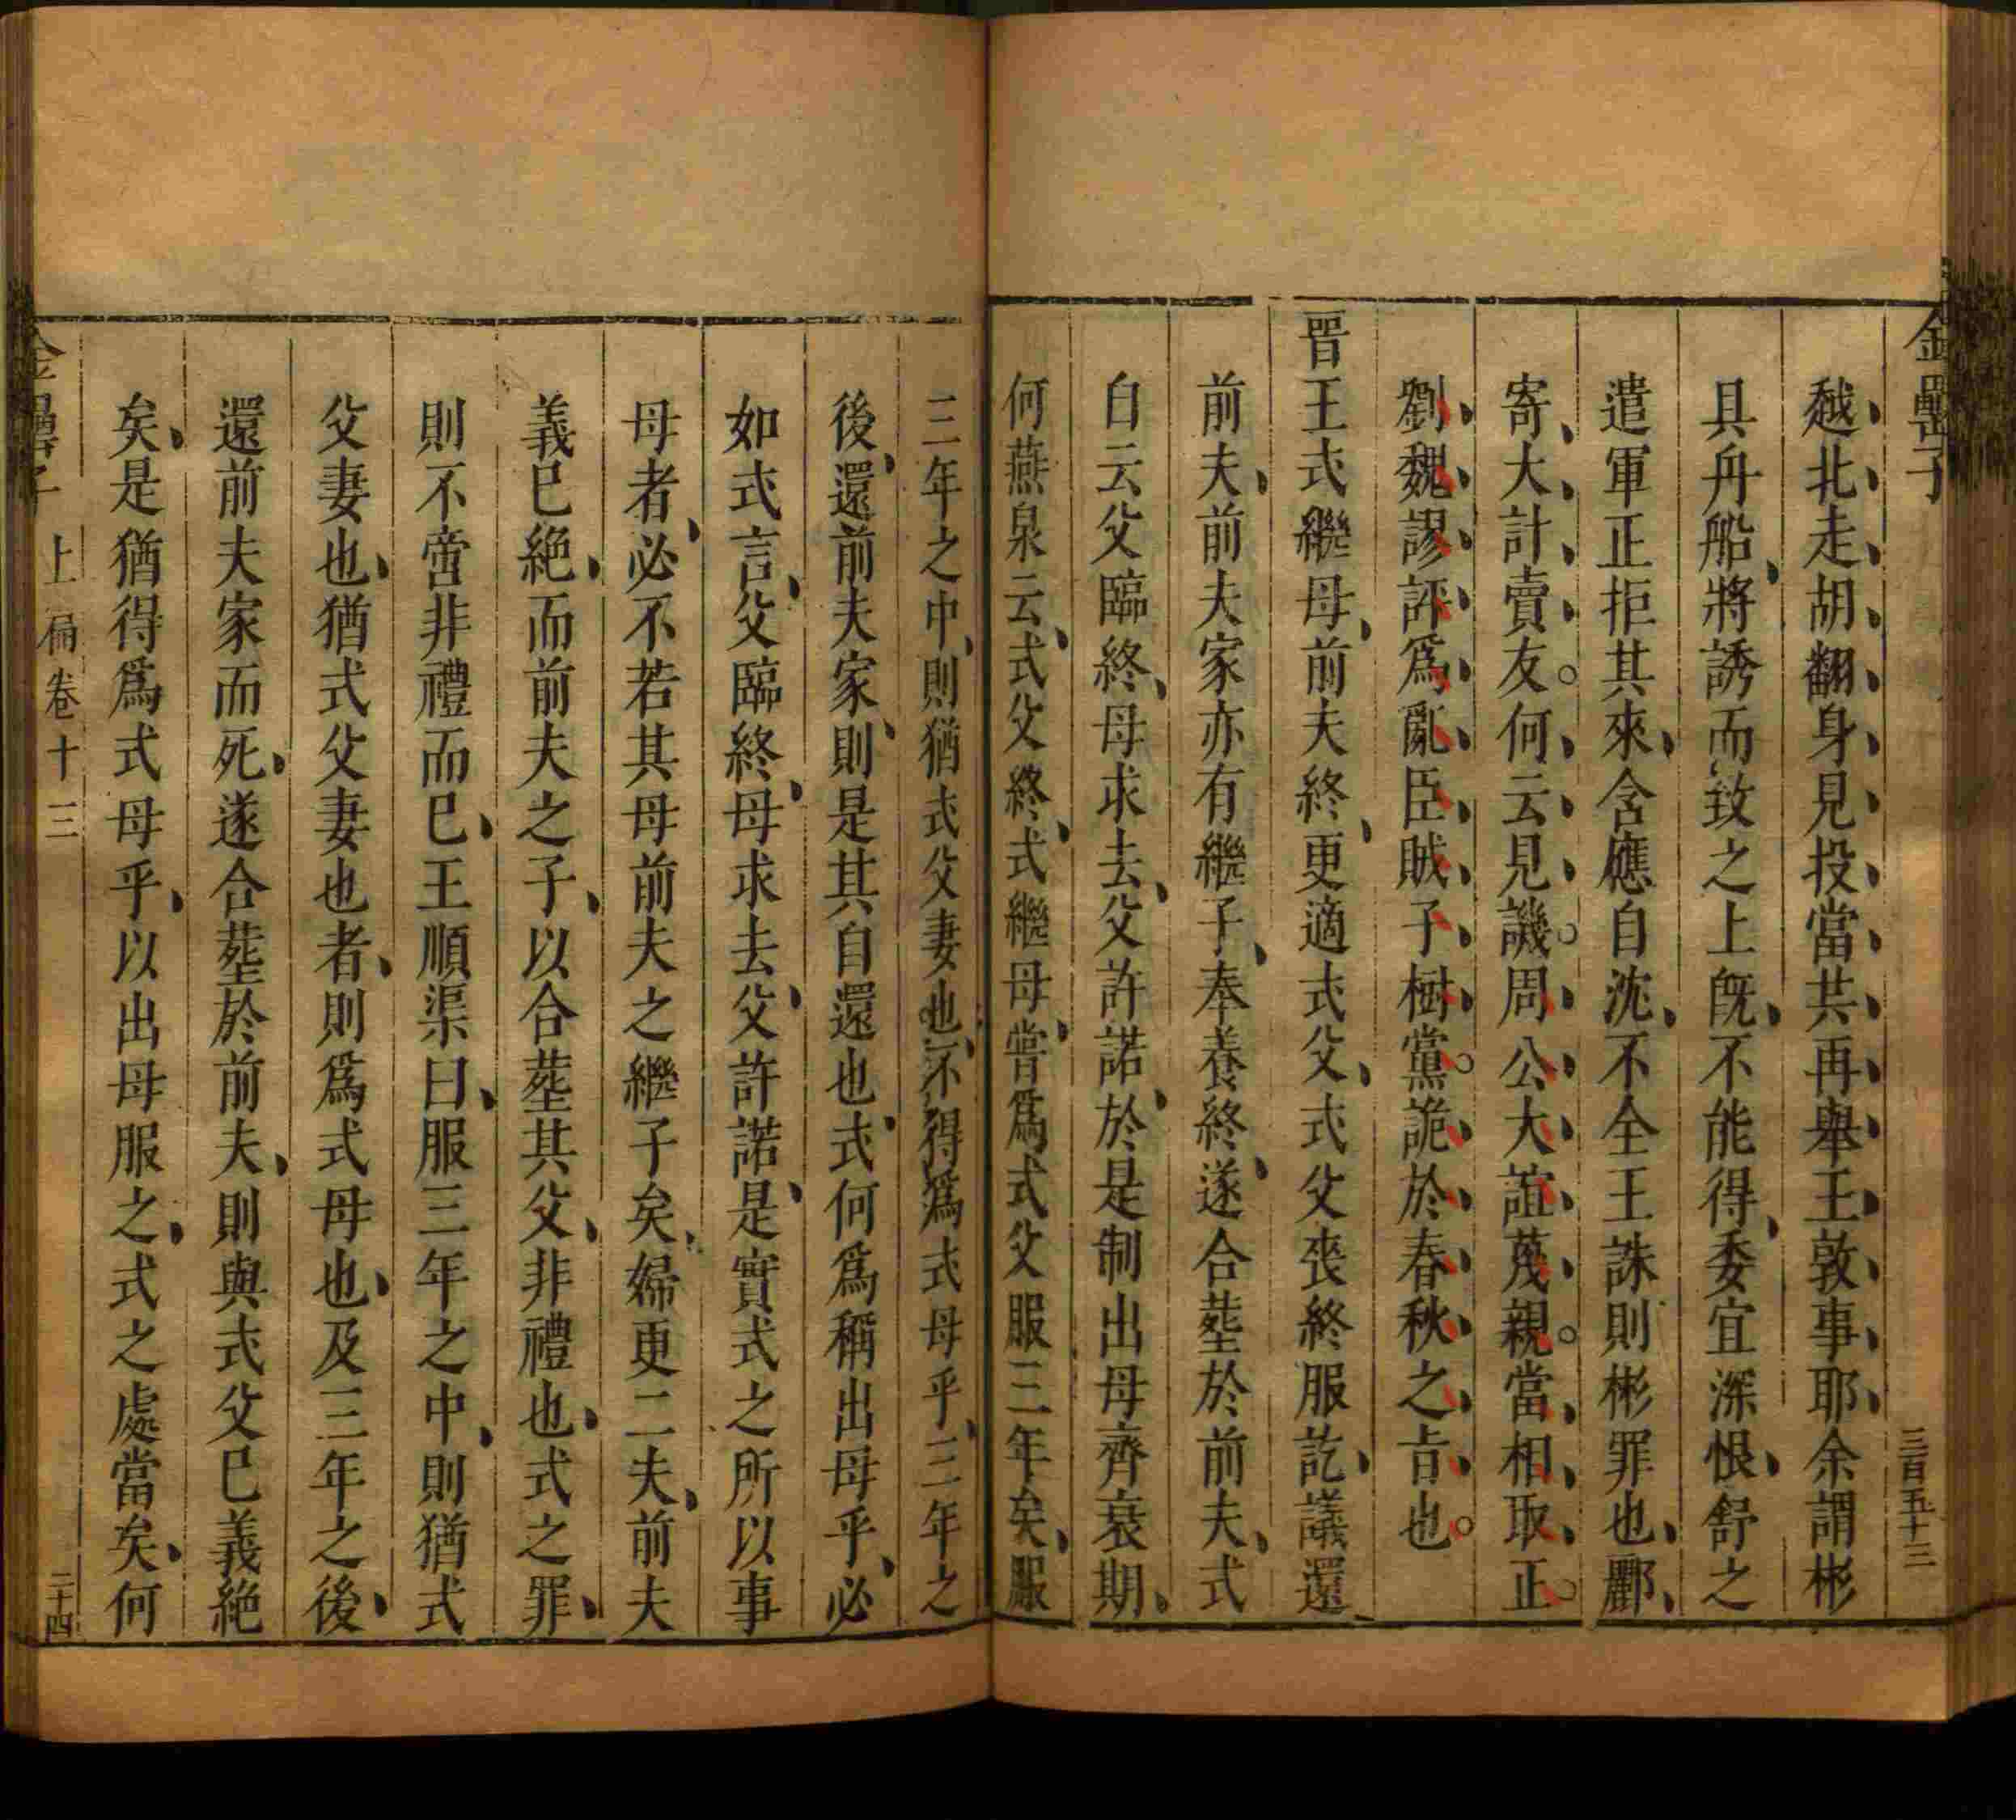 金罍子
三百五十三
越北走胡翻身見投當共再舉王敦事耶余謂彬
具舟船將誘而致之上旣不能得委宜深恨舒之
遣軍正拒其來含應自沈不全王誅則彬罪也酈
寄大計賣友何云見譏周公大誼蔑親當相取正
劉魏謬評爲亂臣賊子樹黨詭於春秋之㫖也
晉王式繼母前夫終更適式父式父喪終服訖議還
前夫前夫家亦有繼子奉養終遂合塟於前夫式
白云父臨終母求去父許諾於是制出母齊衰期
何燕泉云式父終式繼母嘗爲式父服三年矣服
三年之中則猶式父妻也不得爲式母乎三年之
後還前夫家則是其自還也式何爲稱出母乎必
如式言父臨終母求去父許諾是實式之所以事
母者必不若其母前夫之繼子矣婦更二夫前夫
義已絶而前夫之子以合塟其父非禮也式之罪
則不啻非禮而已王順渠曰服三年之中則猶式
父妻也猶式父妻也者則爲式母也及三年之後
還前夫家而死遂合塟於前夫則與式父已義絶
矣是猶得爲式母乎以出母服之式之處當矣何
金罍子
上扁卷十三
二十四